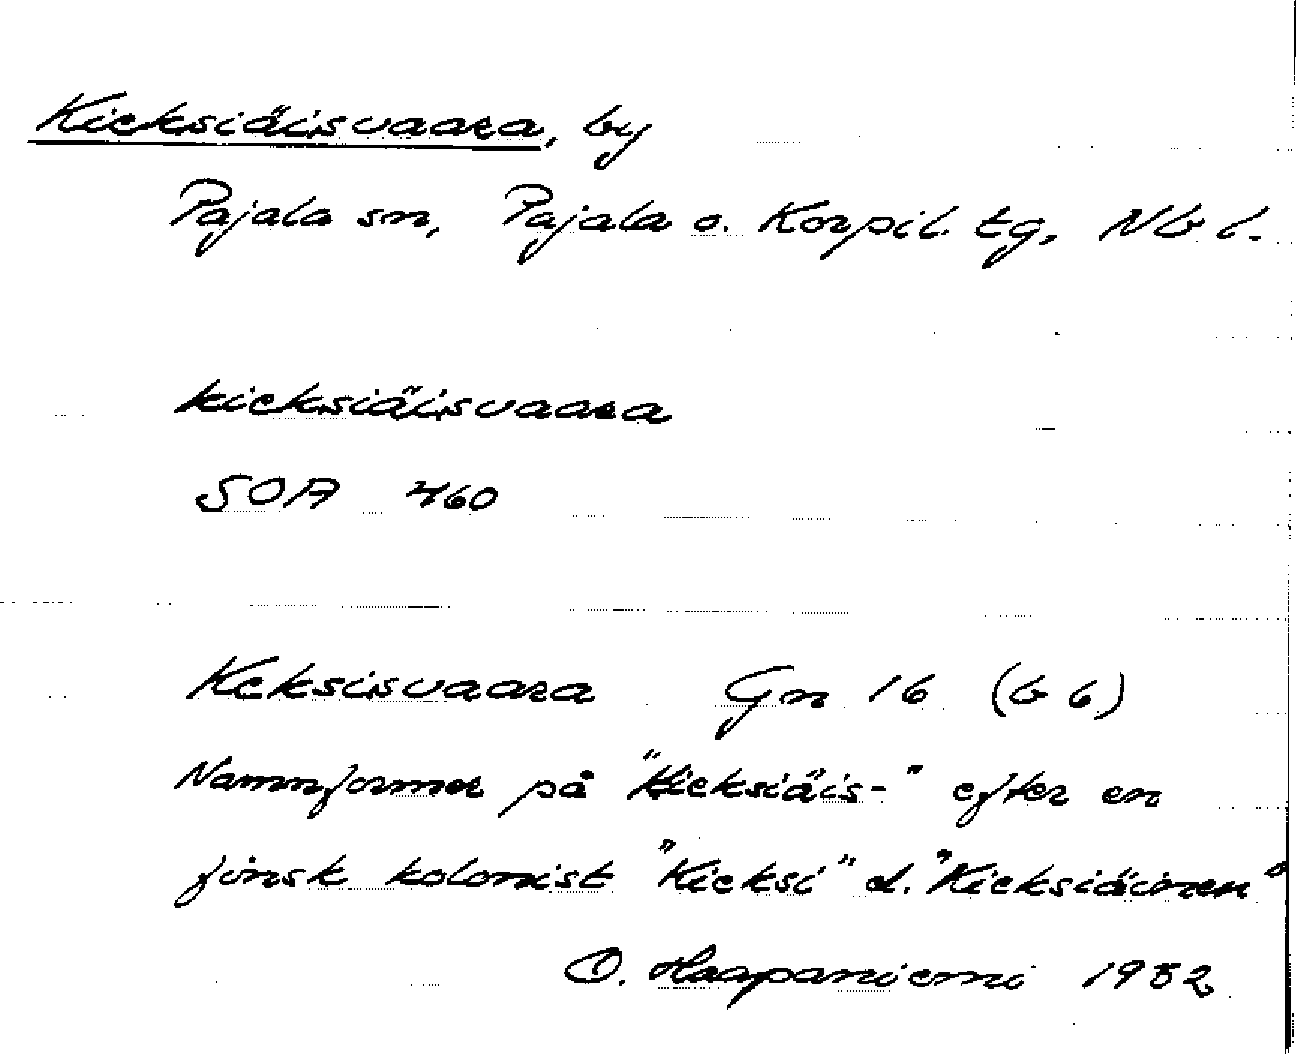 Kieksiäisvaara, by
Pajala sn, Pajala o. Korpil. tg, Nb l.
kieksiäisvaara
SOA 460
Keksisvaara Gn 16 (b 6)
Namnformer på "Kieksiäis-" efter en
finsk kolonist "Kieksi" el. "Kieksiäinen"
O. Haapaniemi 1952